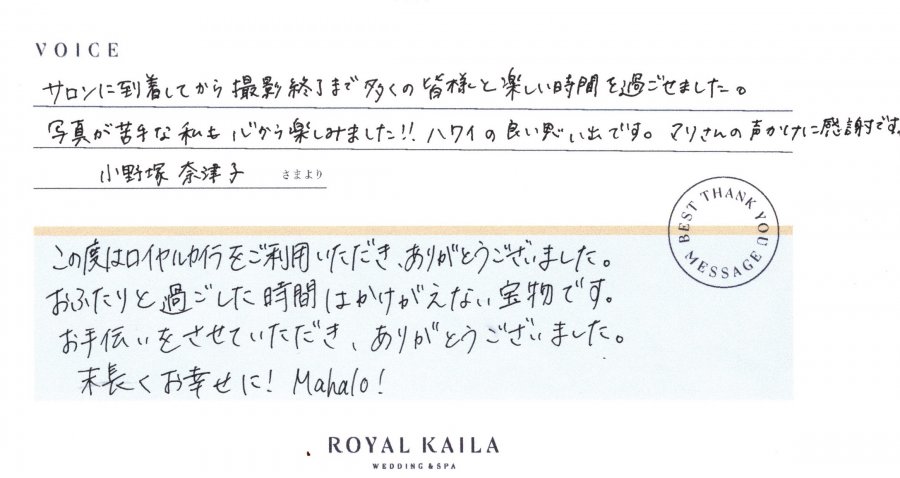 VOICE
サロンに到着してから撮影終了まで多くの皆様と楽しい時間を過ごせました。
写真が苦手な私も心から楽しみました!! ハワイの良い思い出です。マリさんの声かけに感謝です。
小野塚 奈津子 さまより
BEST THANK YOU MESSAGE
この度はロイヤルカイラをご利用いただき、ありがとうございました。
おふたりと過ごした時間はかけがえない宝物です。
お手伝いをさせていただき、ありがとうございました。
末長くお幸せに! Mahalo!
ROYAL KAILA
WEDDING & SPA